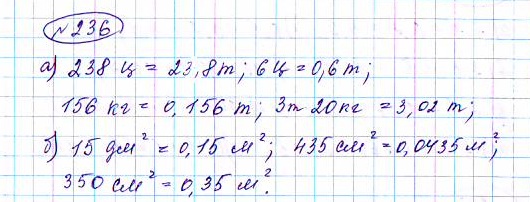 №236
а) 238 ц = 23,8 т; 6 ц = 0,6 т;
156 кг = 0,156 т; 3т 20 кг = 3,02 т;
б) 15 дм² = 0,15 м²; 435 см² = 0,0435 м²;
350 см² = 0,35 м².